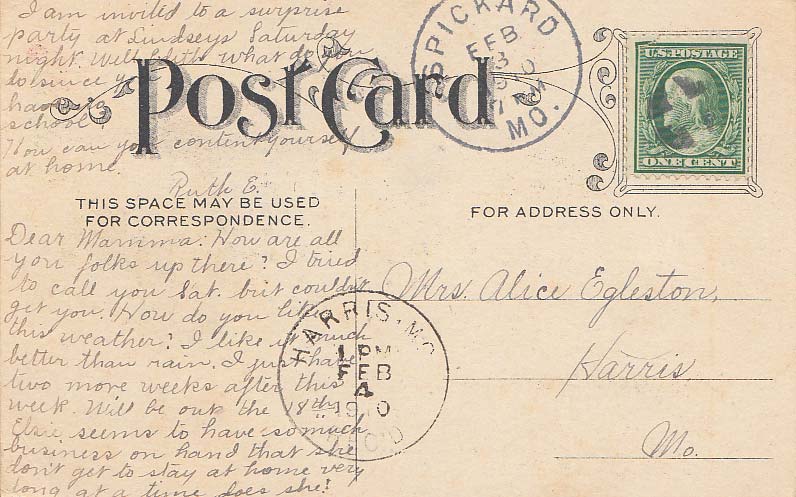 I am invited to a surprise
party at Lindseys Saturday
night. Will Edith what do you
do since you
have no
school?
How can you content yourself
at home.
Ruth E.
Post Card
SPICKARD
FEB
3
7 PM
MO.
U.S. POSTAGE
ONE CENT
THIS SPACE MAY BE USED
FOR CORRESPONDENCE.
FOR ADDRESS ONLY.
Dear Mamma: How are all
you folks up there? I tried
to call you Sat. but couldn't
get you. How do you like
this weather? I like it much
better than rain. I just have
two more weeks after this
week. Will be out the 18th.
Elsie seems to have so much
business on hand that she
don't get to stay at home very
long at a time does she!
HARRIS, MO.
1 PM
FEB
4
1910
REC'D
Mrs. Alice Egleston,
Harris
Mo.